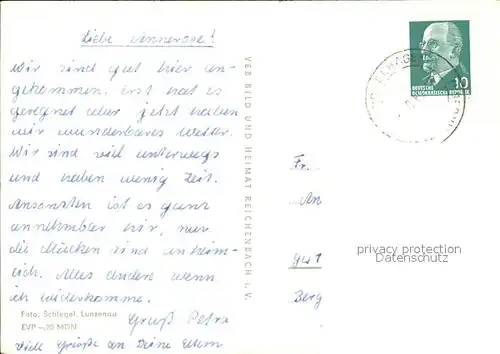 Liebe Annerose!
Wir sind gut hier an-
gekommen. erst hat es
geregnet aber jetzt haben
wir wunderbares Wetter.
Wir sind viel unterwegs
und haben wenig Zeit.
Ansonsten ist es ganz
annehmbar hir, nur
die Mücken sind unheim-
lich. Alles andere wenn
ich wiederkomme.
Gruß Petra
viele Grüße an Deine Eltern
Foto: Schlegel, Lunzenau
EVP –,20 MDN
VEB BILD UND HEIMAT REICHENBACH i. V.
10
DEUTSCHE
DEMOKRATISCHE REPUBLIK
Fr.
An
Berg
privacy protection
Datenschutz